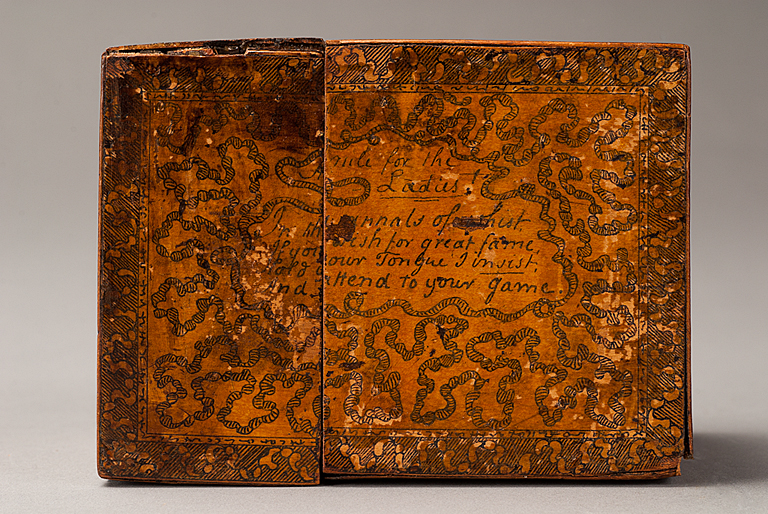 rule for the
Ladies
In the annals of whist
If you wish for great fame
Hold your Tongue I insist,
And attend to your game.